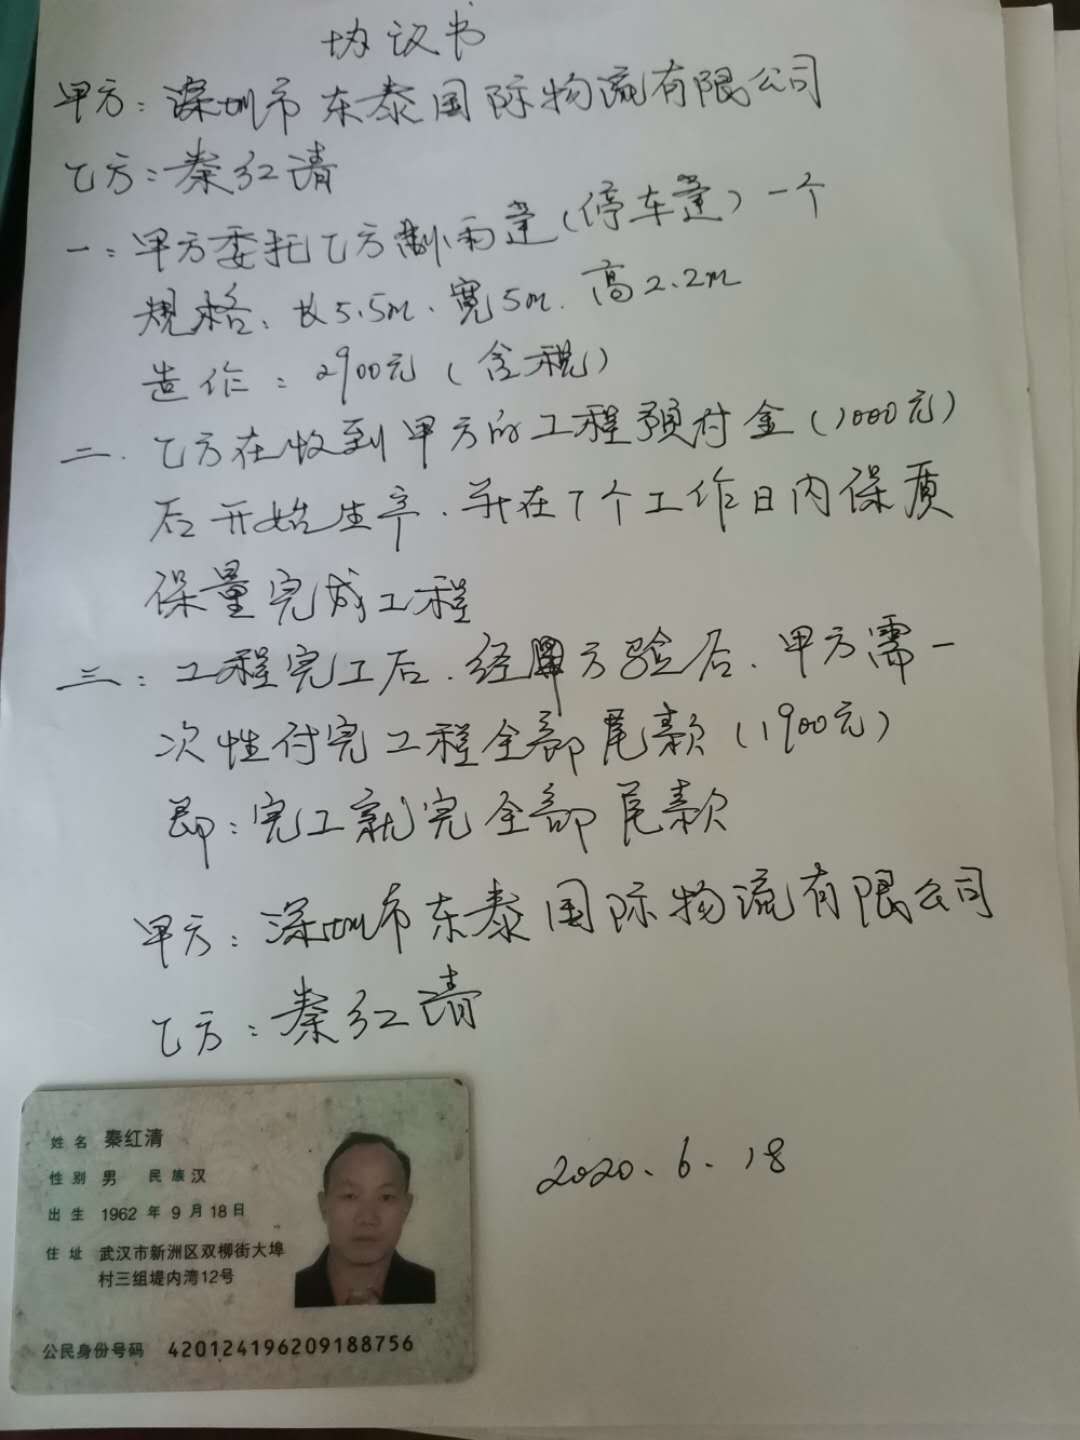 协议书
甲方：深圳市东泰国际物流有限公司
乙方：秦红清
一：甲方委托乙方制雨蓬（停车蓬）一个
规格、长5.5m、宽5m. 高2.2m
造作：2900元（含税）
二. 乙方在收到甲方的工程预付金（1000元）
后开始生产.并在7个工作日内保质
保量完成工程
三：工程完工后.经甲方验后.甲方需一
次性付完工程全部尾款（1900元）
即：完工就完全部尾款
甲方：深圳市东泰国际物流有限公司
乙方：秦红清
2020、6、18
姓名 秦红清
性别 男 民族 汉
出生 1962 年 9 月 18 日
住址 武汉市新洲区双柳街大埠
村三组堤内湾12号
公民身份号码 420124196209188756